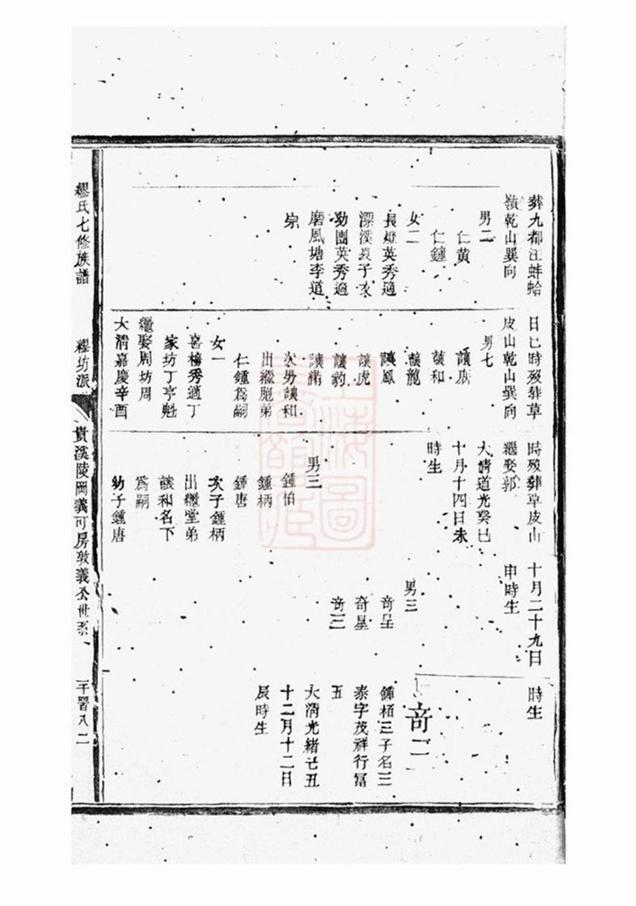 葬九都汪蚌蛤
嶺乾山巽向
男二
仁黄
仁鐘
女二
長燈英秀適
漂溪吳子亥
幼團英秀適
磨風塘李道
宗
日巳時殁葬草
皮山乾山巽向
男七
讓唐
讓和
讓龍
讓鳳
讓虎
讓豹
讓滿
次男讓和
出繼胞弟
仁鐘爲嗣
女一
喜梅秀適丁
家坊丁亨魁
繼娶周坊周
大清嘉慶辛酉
時殁葬草皮山
繼娶郭
大清道光癸巳
十月十四日未
時生
男三
鍾柏
鍾柄
鍾唐
次子鍾柄
出繼堂弟
讓和名下
爲嗣
幼子鍾唐
十月二十九日
申時生
男三
奇呈
奇星
奇三
時生
奇三
鍾栢三子名三
泰字茂祥行富
五
大清光緒己丑
十二月十二日
辰時生
繆氏七修族譜
繆坊派
貴溪陵岡義可房敦義公世系